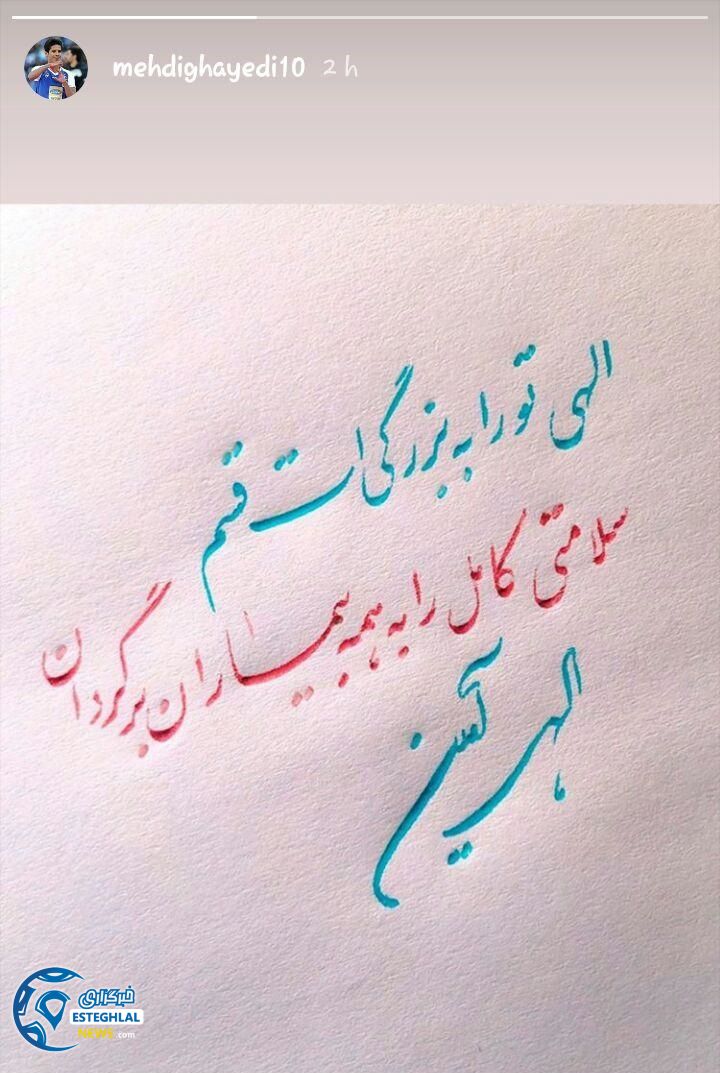 mehdighayedi10 2 h
الهی تو را به بزرگی ات قسم
سلامتی کامل را به همه بیماران برگردان
الهی آمین
خبرگزاری
ESTEGHLAL
NEWS.com